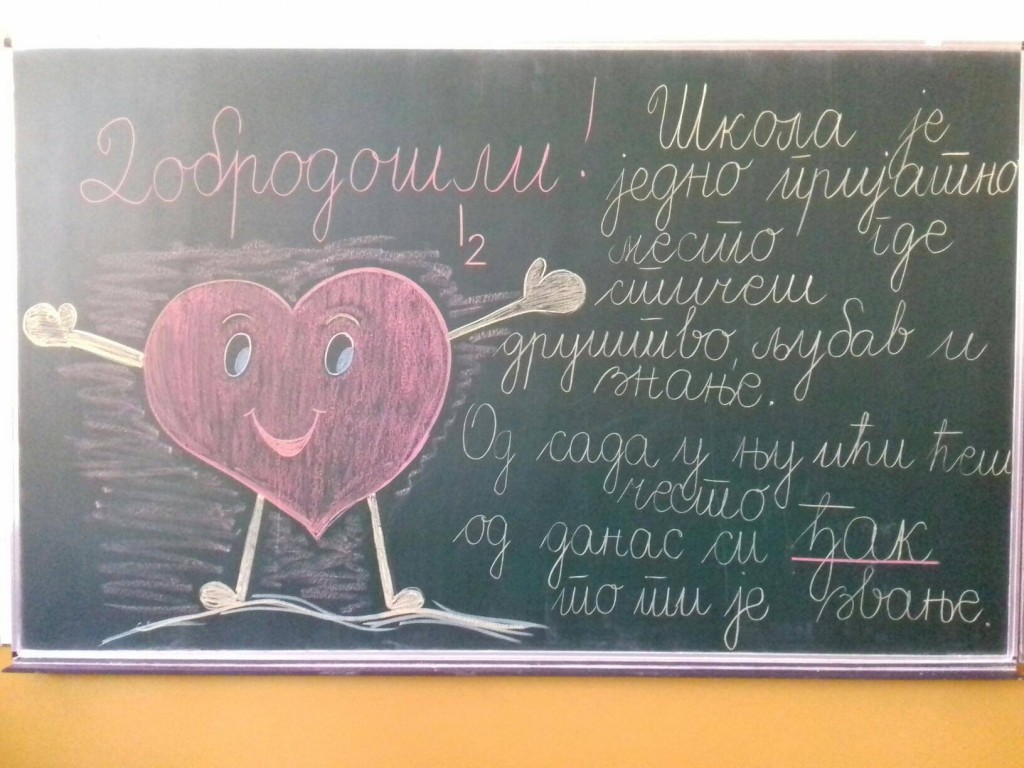 Добродошли!
1 2
Школа је
једно пријатно
место где
стичеш
друштво, љубав и
знање.
Од сада у њу ићи ћеш
често
од данас си ђак
то ти је звање.